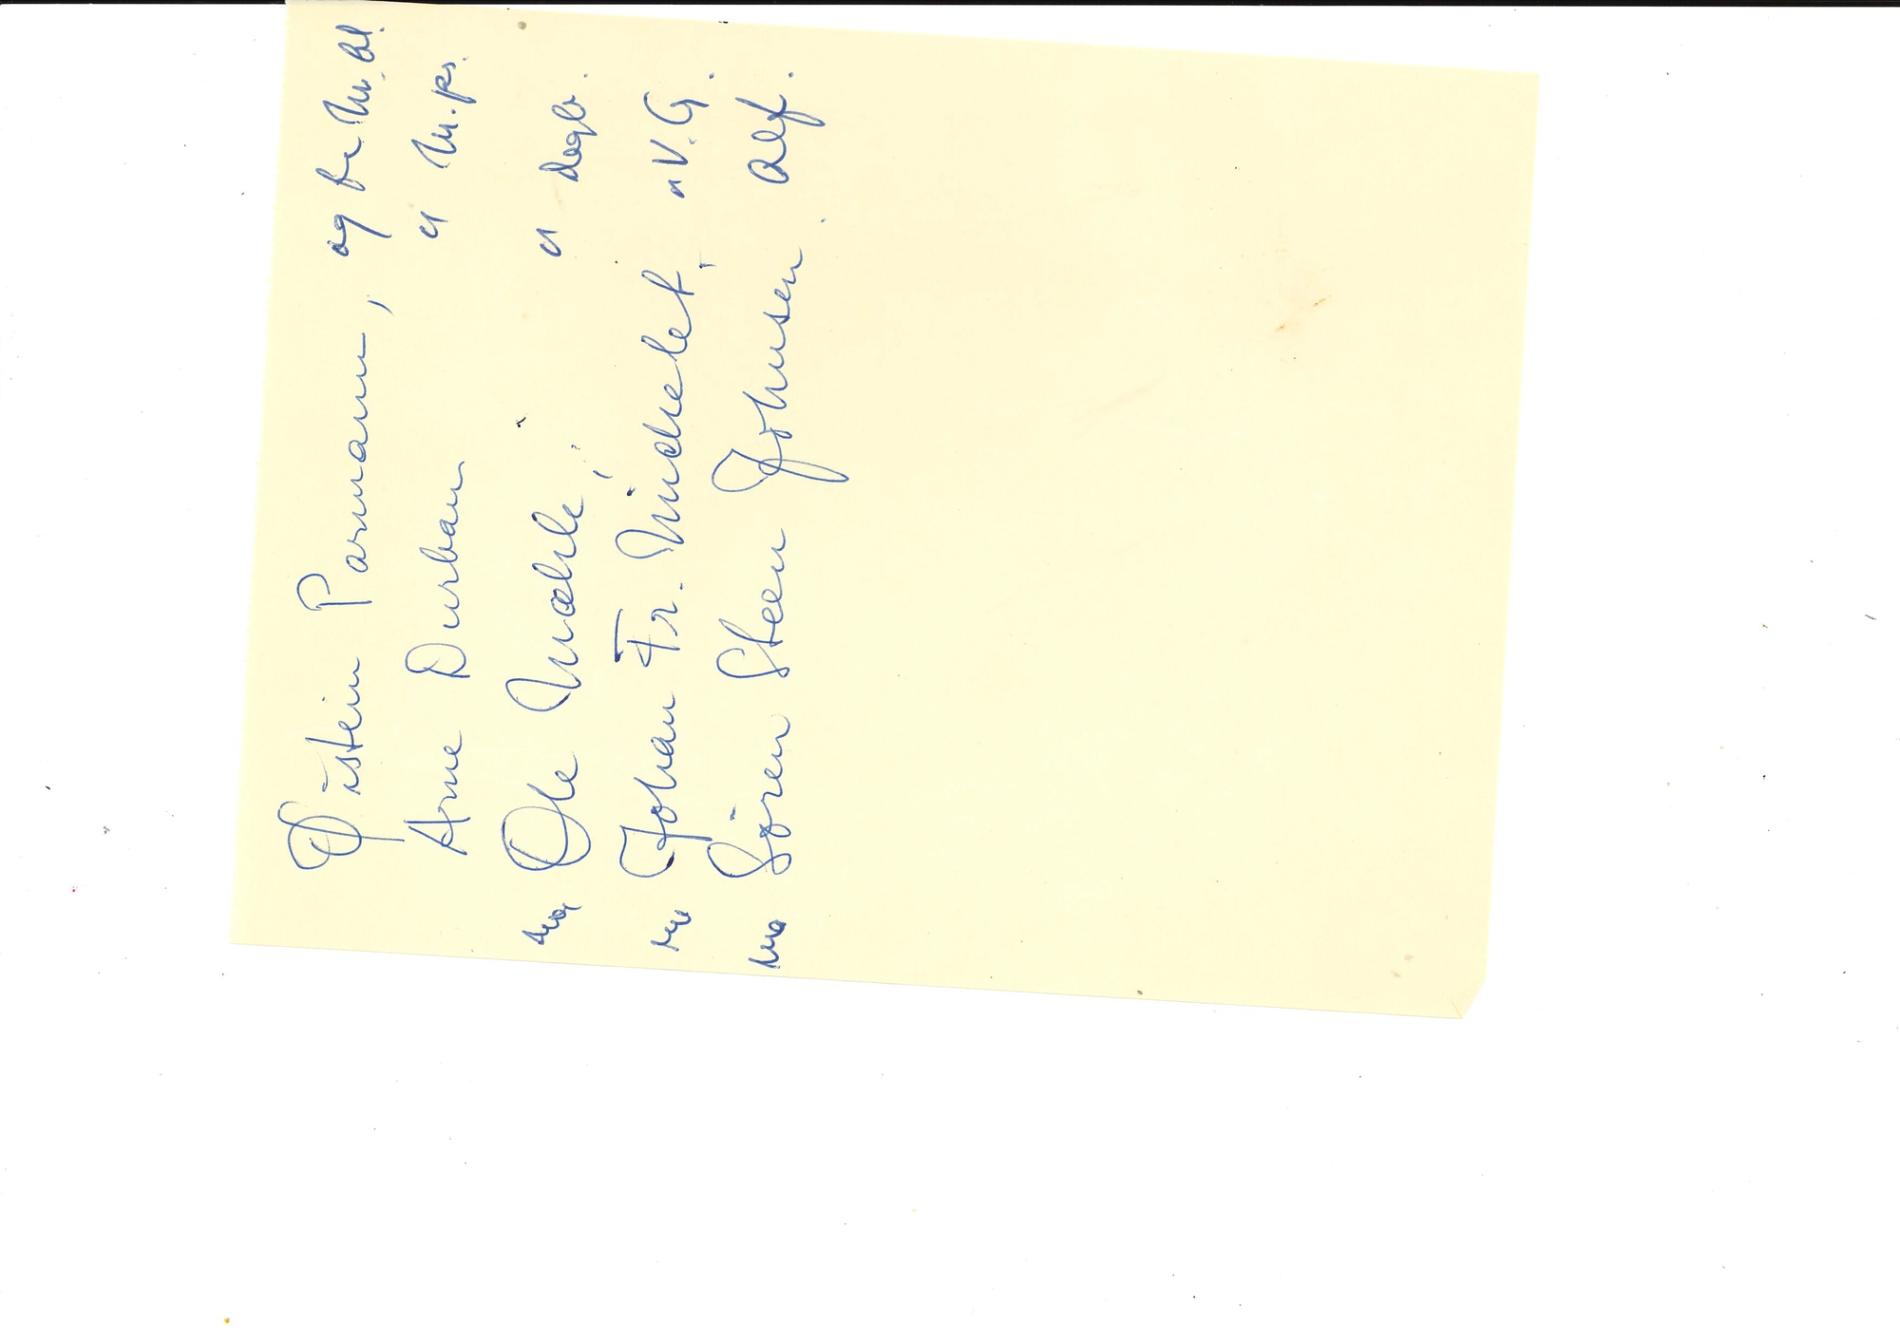 Øistein Parmann, og fr. M. Bl.
Arne Durban " M.ps.
Ole Mæhle, " Dagb.
Johan Fr. Michelet, " V.G.
Sören Steen Johnsen. Alf.